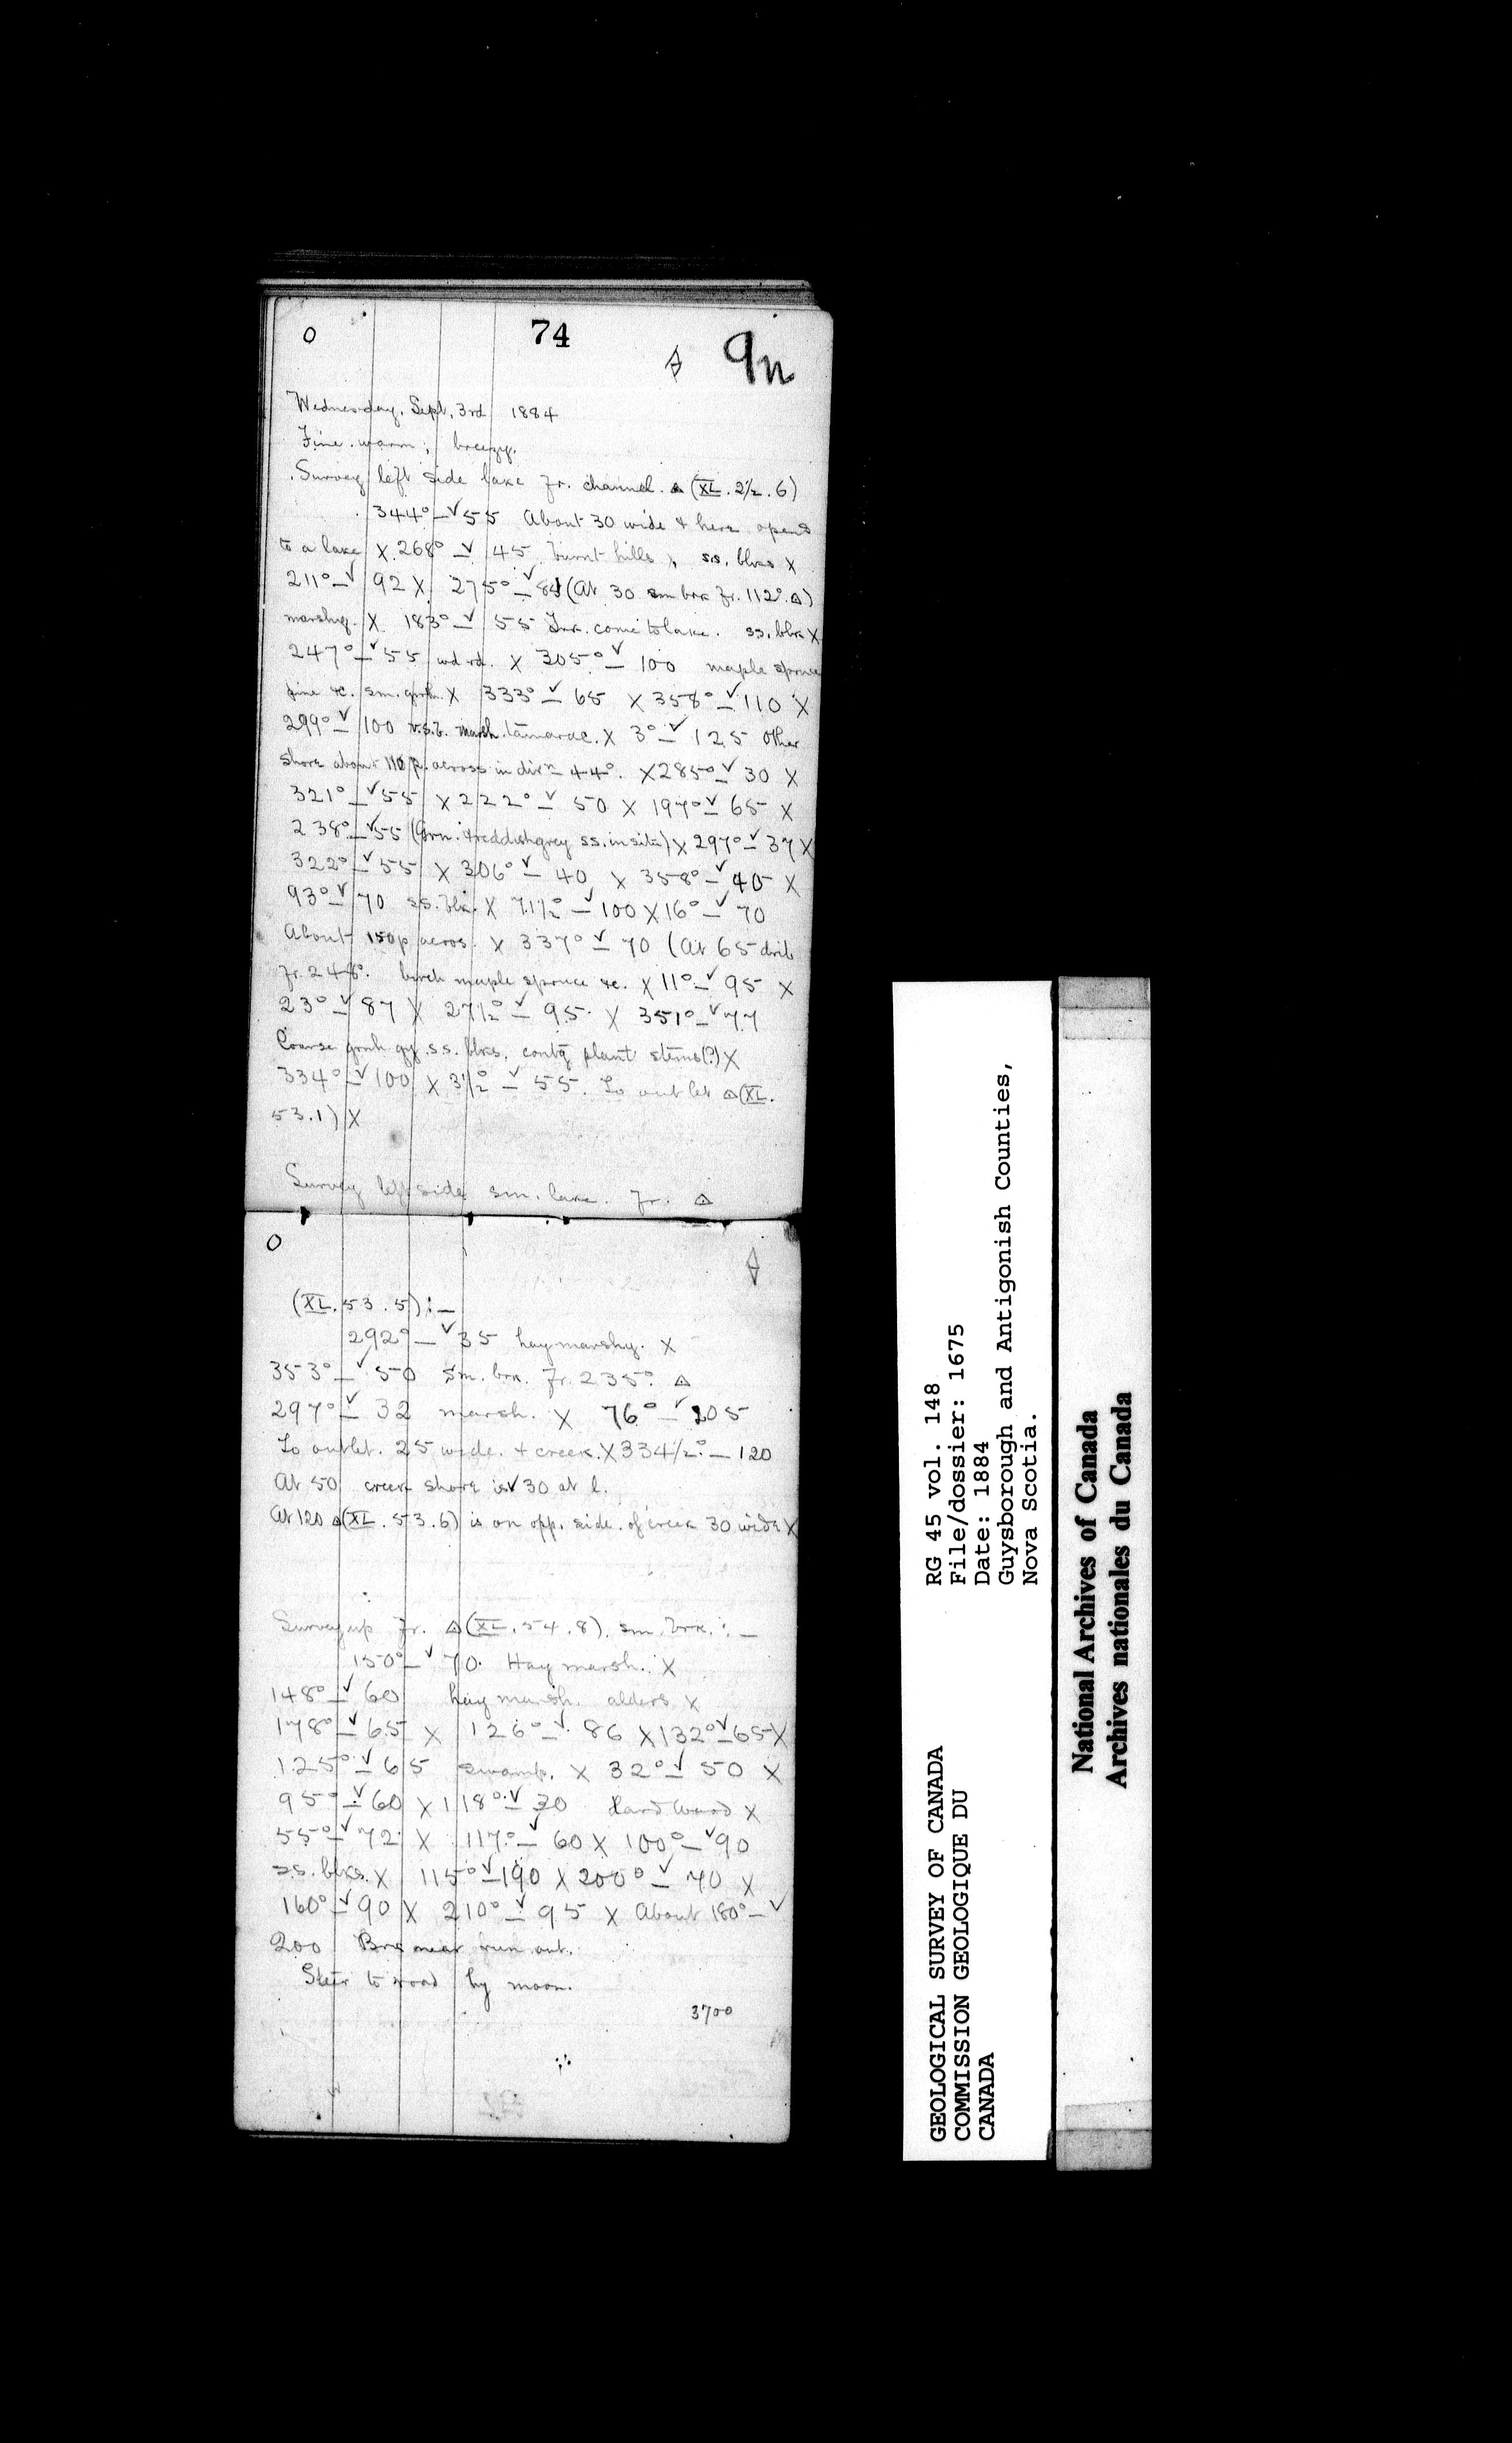 0 74 9n
Wednesday. Sept. 3rd 1884
Fine. warm; breezy.
Survey left side lake fr. channel. △ (XL. 2½. 6)
344° — ✓ 55 About 30 wide & here opens
to a lake X 268° — ✓ 45 burnt hills, ss. blks X
211° — ✓ 92 X 275° — ✓ (At 30 sm brk fr. 112° △)
marshy. X 183° — ✓ 55 come to lake. ss. blks X
247° — ✓ 55 wd rd. X 305° — ✓ 100 maple spruce
pine &c. sm. grth. X 333° — ✓ 65 X 358° — ✓ 110 X
299° — ✓ 100 marsh. tamarac. X 3° — ✓ 125 Other
shore about 110 p. across in dirn 44°. X 285° — ✓ 30 X
321° — ✓ 55 X 222° — ✓ 50 X 197° — ✓ 65 X
238° — ✓ 55 (Grn. & reddish grey ss. in situ) X 297° — ✓ 37 X
322° — ✓ 55 X 306° — ✓ 40 X 358° — ✓ 40 X
93° — ✓ 70 ss. blk. X 71½° — ✓ 100 X 16° — ✓ 70
About 150 p acros. X 337° — ✓ 70 (At 65
fr. 246°. birch maple spruce &c. X 11° — ✓ 95 X
23° — ✓ 87 X 27½° — ✓ 95 X 351° — ✓ 77
Coarse grnh gy. s.s. blks. contg plant stems(?) X
334° — ✓ 100 X 3½° — ✓ 55. To outlet △ (XL.
53.1) X
Survey left side sm. lake. fr. △
0
(XL. 53. 5) :—
292° — ✓ 35 hay marshy. X
353° — ✓ 50 Sm. brk. fr. 235° △
297° — ✓ 32 marsh. X 76° — ✓ 205
To outlet. 25 wide. & creek. X 334½° — 120
At 50 creek shore is ✓ 30 at l.
At 120 △ (XL. 53. 6) is on opp. side. of creek 30 wide X
Survey up fr. △ (XL. 54. 8). sm. brk. :—
150° — ✓ 70. Hay marsh. X
148° — ✓ 60 hay marsh. alders X
178° — ✓ 65 X 126° — ✓ 86 X 132° — ✓ 65 X
125° — ✓ 65 swamp. X 32° — ✓ 50 X
95° — ✓ 60 X 118° — ✓ 30 Hard wood X
55° — ✓ 72 X 117° — ✓ 60 X 100° — ✓ 90
ss. blks. X 115° — ✓ 190 X 200° — ✓ 70 X
160° — ✓ 90 X 210° — ✓ 95 X About 180° — ✓
200 Brk near run out.
Steer to road by moon.
3700
GEOLOGICAL SURVEY OF CANADA
COMMISSION GEOLOGIQUE DU
CANADA
RG 45 vol. 148
File/dossier: 1675
Date: 1884
Guysborough and Antigonish Counties,
Nova Scotia.
National Archives of Canada
Archives nationales du Canada